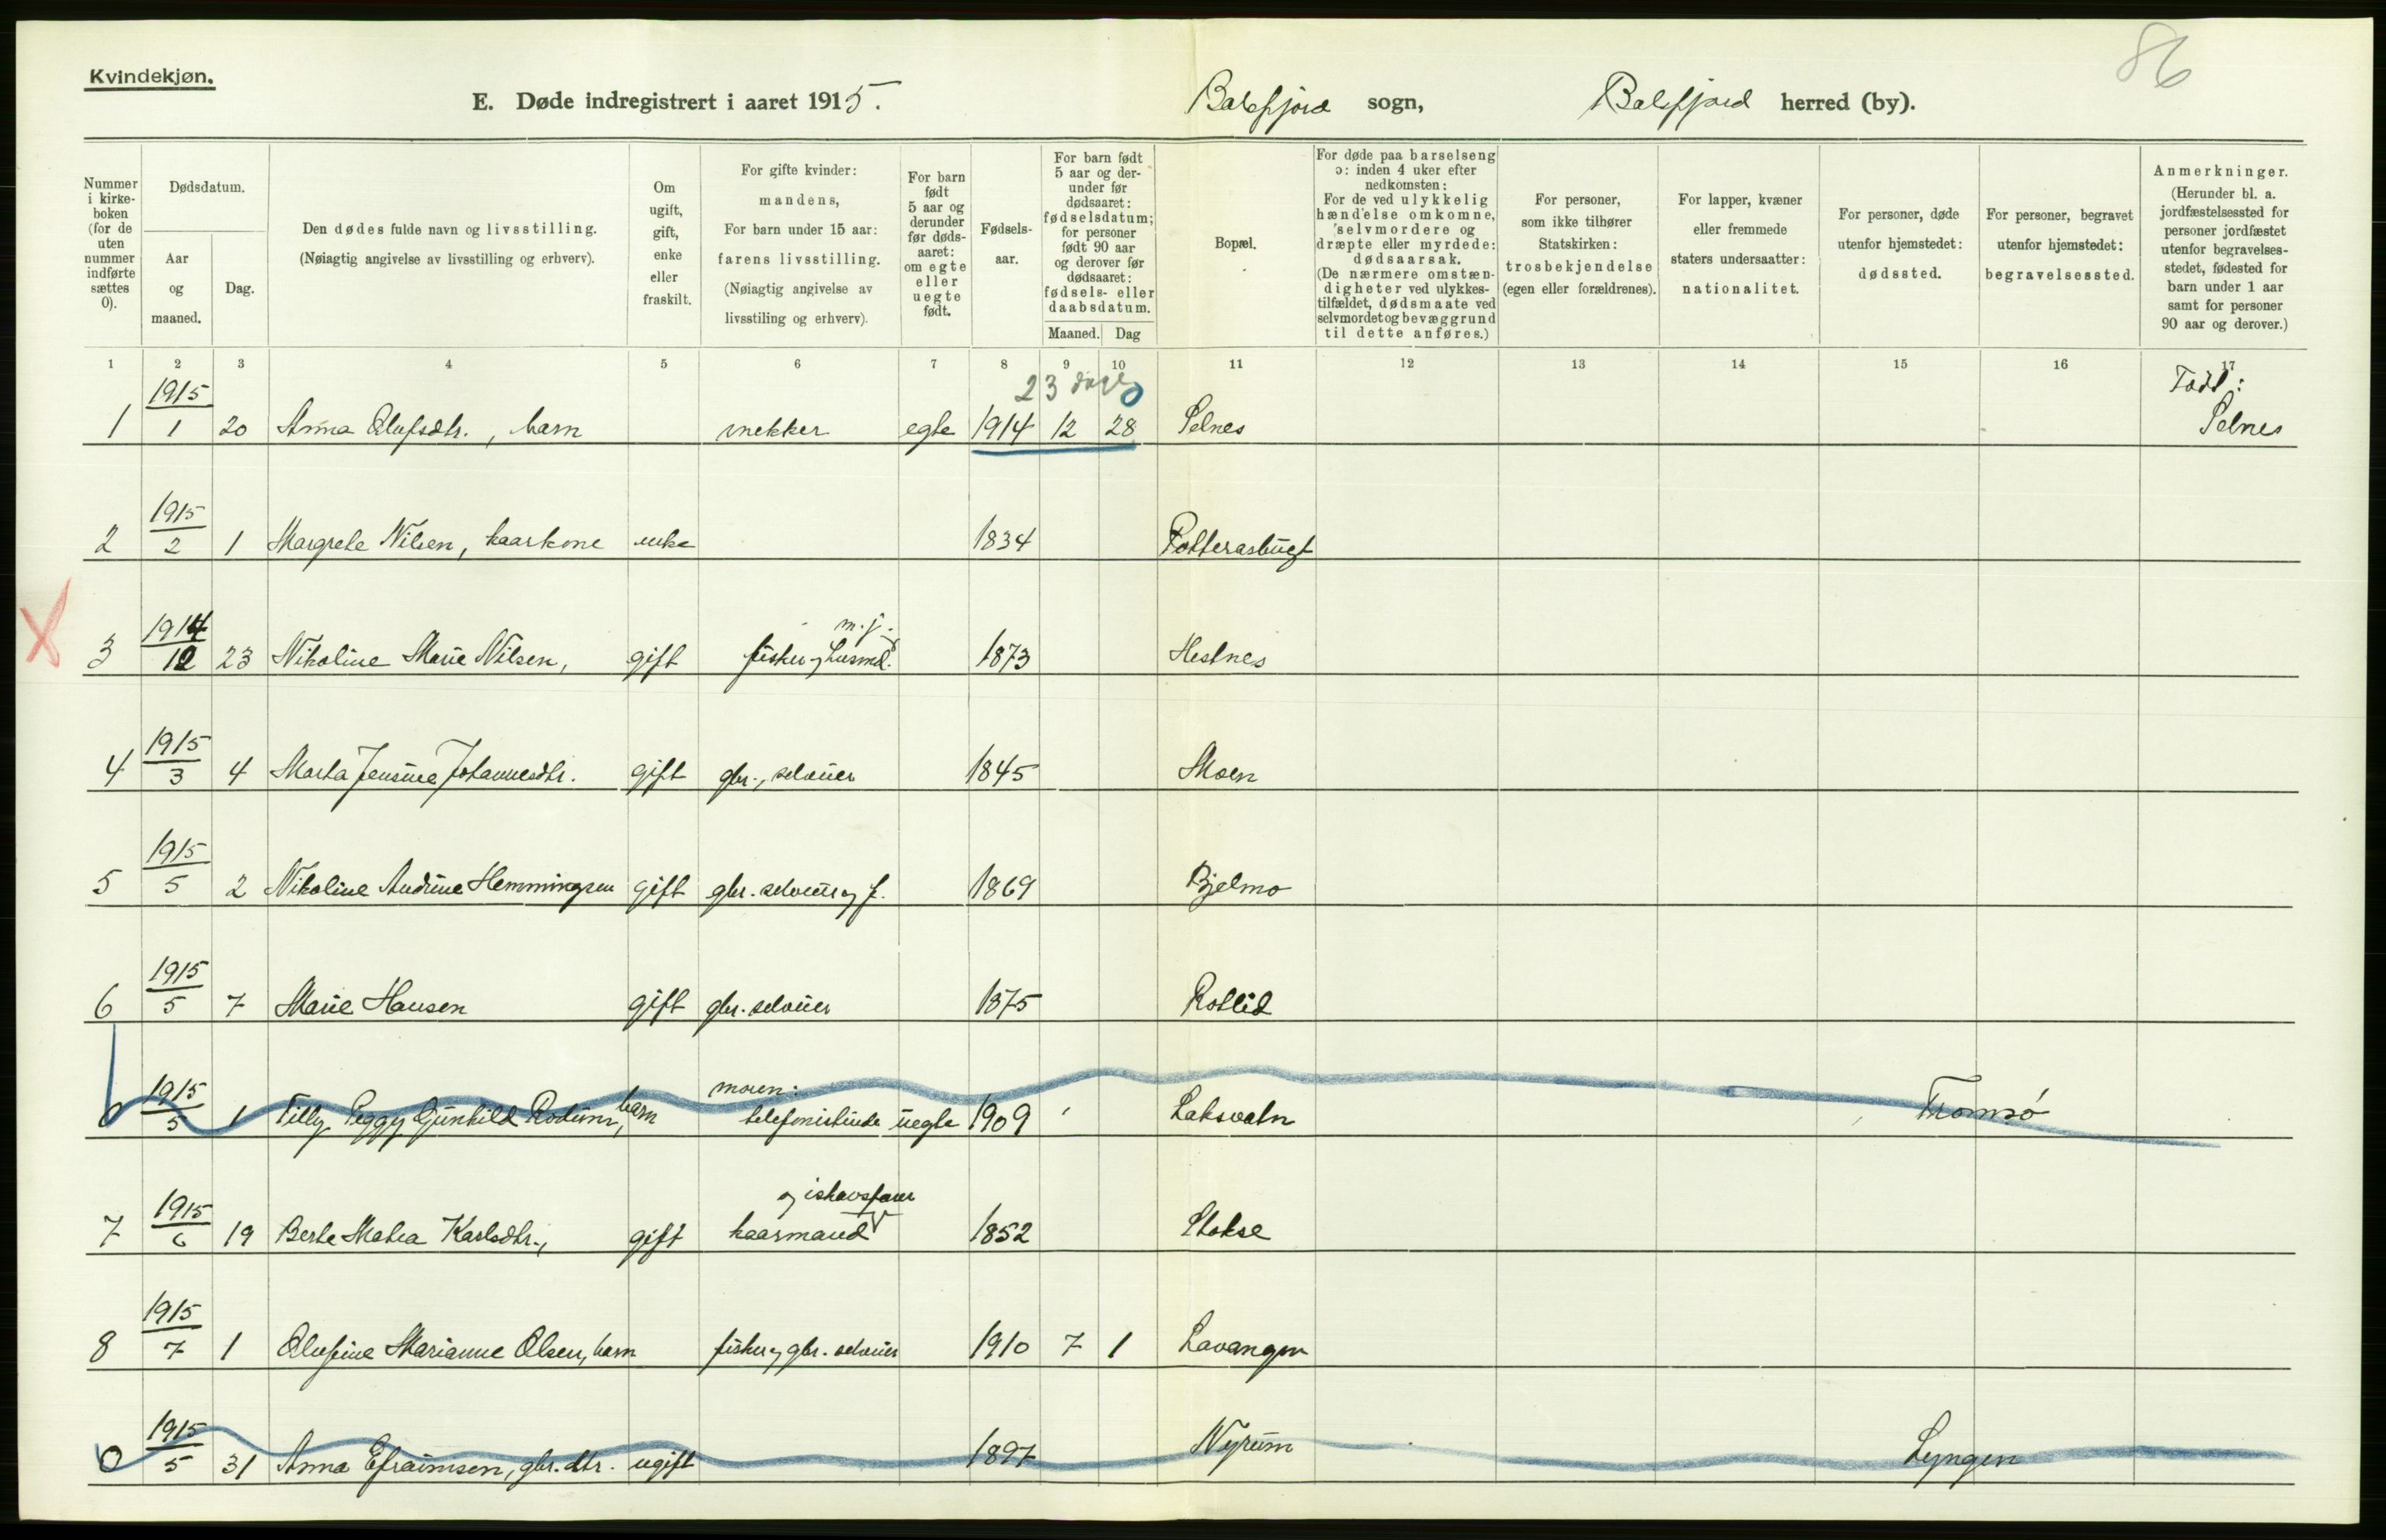 86
Kvindekjøn.
E. Døde indregistrert i aaret 1915. Balsfjord sogn, Balsfjord herred (by).
Nummer i kirke-boken (for de uten nummer indførte sættes 0).
Dødsdatum.
Aar og maaned.
Dag.
Den dødes fulde navn og livsstilling.
(Nøiagtig angivelse av livsstilling og erhverv).
Om ugift, gift, enke eller fraskilt.
For gifte kvinder:
mandens,
For barn under 15 aar:
farens livsstilling.
(Nøiagtig angivelse av
livsstiling og erhverv).
For barn født 5 aar og derunder før døds-aaret: om egte eller uegte født.
Fødsels-aar.
For barn født
5 aar og der-
under før
dødsaaret:
fødselsdatum;
for personer
født 90 aar
og derover før
dødsaaret:
fødsels- eller
daabsdatum.
Maaned. Dag
Bopæl.
For døde paa barselseng
ɔ: inden 4 uker efter
nedkomsten:
For de ved ulykkelig
hændelse omkomne,
selvmordere og
dræpte eller myrdede:
dødsaarsak.
(De nærmere omstæn-
digheter ved ulykkes-
tilfældet, dødsmaate ved
selvmordet og bevæggrund
til dette anføres.)
For personer,
som ikke tilhører
Statskirken:
trosbekjendelse
(egen eller forældrenes).
For lapper, kvæner
eller fremmede
staters undersaatter:
nationalitet.
For personer, døde
utenfor hjemstedet:
dødssted.
For personer, begravet
utenfor hjemstedet:
begravelsessted.
Anmerkninger.
(Herunder bl. a.
jordfæstelsessted for
personer jordfæstet
utenfor begravelses-
stedet, fødested for
barn under 1 aar
samt for personer
90 aar og derover.)
1 2 3 4 5 6 7 8 9 10 11 12 13 14 15 16 17
1915 23 dage Født:
1 1 20 Anna Olufsdtr., barn snekker egte 1914 12 28 Selnes Selnes
1915
2 2 1 Margrete Nilsen, kaarkone enke 1834 Potterasbugt
1914 m.j.
3 12 23 Nikoline Marie Nilsen, gift fisker og husmd. 1873 Hestnes
1915
4 3 4 Marta Jensine Johannesdtr. gift gbr., selveier 1845 Moen
1915
5 5 2 Nikoline Andrine Hemmingsen gift gbr. selveier og f. 1869 Bjelmo
1915
6 5 7 Marie Hansen gift gbr. selveier 1875 Rotlid
1915 moren:
0 5 1 Tilly Peggy Gunhild barn telefonistinde uegte 1909 Laksvatn Tromsø
1915 og ishavsfarer
7 6 19 Berte Matea Karlsdtr., gift kaarmand 1852 Stokse
1915
8 7 1 Olufine Marianne Olsen, barn fisker og gbr. selveier 1910 7 1 Lavangen
1915
0 5 31 Anna Efraimsen, gbr. dtr. ugift 1897 Nyrum Lyngen